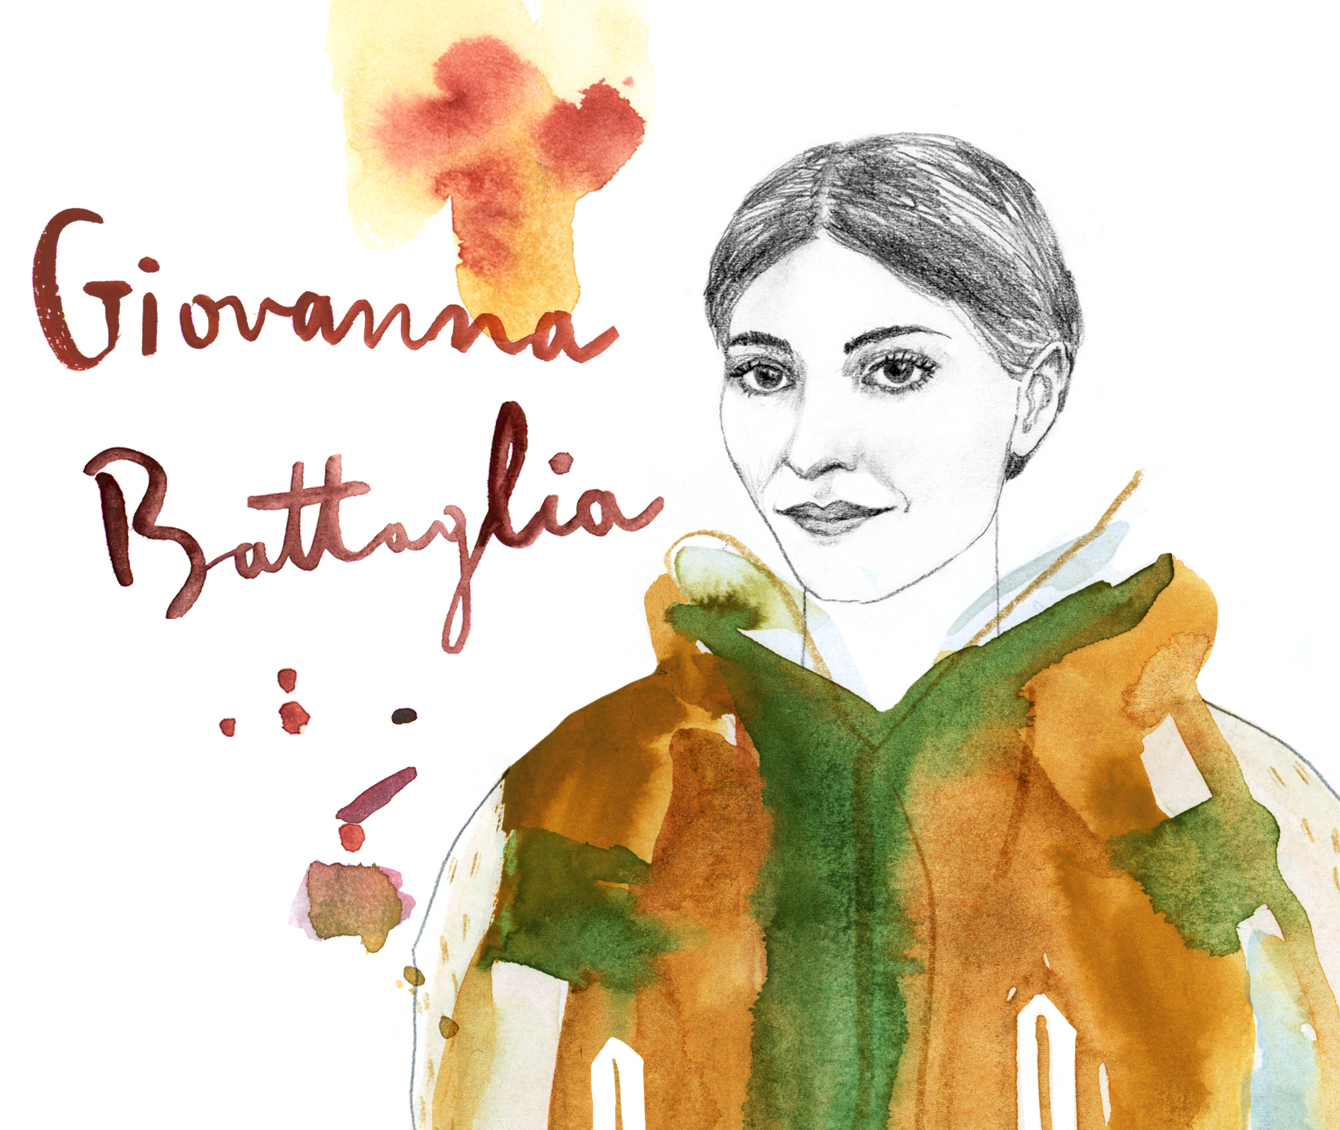 Giovanna
Battaglia